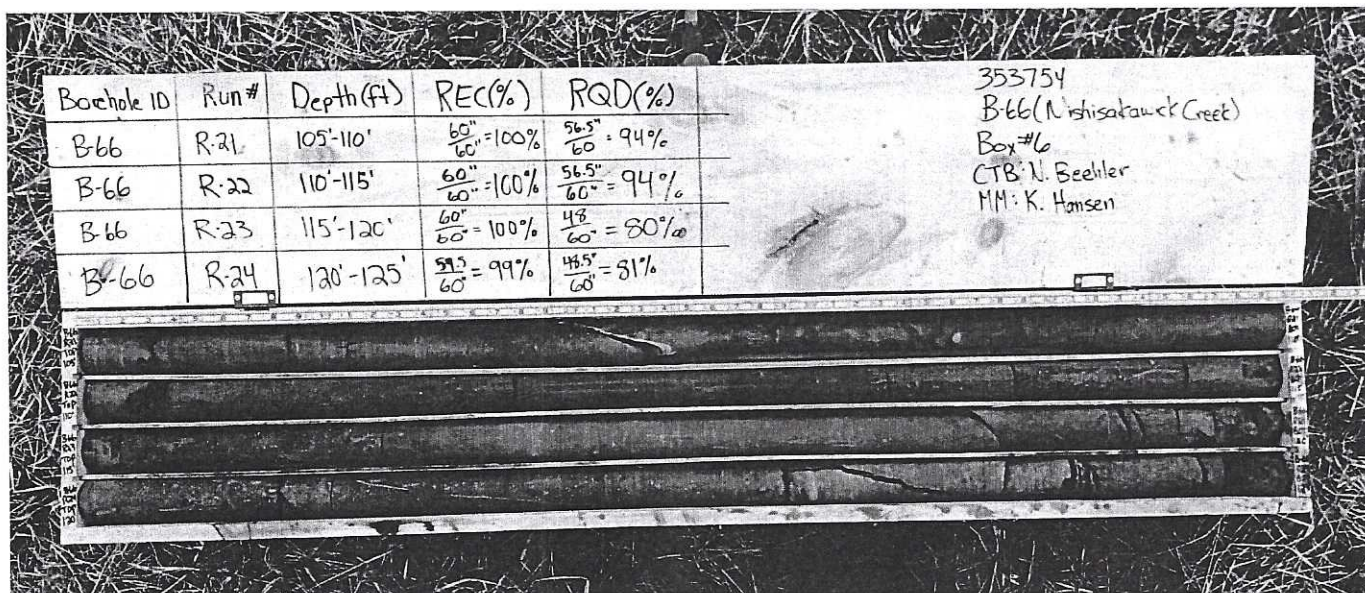 Borehole ID Run # Depth (ft) REC(%) RQD(%)
B-66 R-21 105'-110' 60"/60" = 100% 56.5"/60 = 94%
B-66 R-22 110'-115' 60"/60" = 100% 56.5"/60" = 94%
B-66 R-23 115'-120' 60"/60" = 100% 48/60" = 80%
B-66 R-24 120'-125' 59.5/60" = 99% 48.5"/60" = 81%
353754
B-66 (Nishisakawick Creek)
Box #6
CTB: N. Beehler
MM: K. Hansen